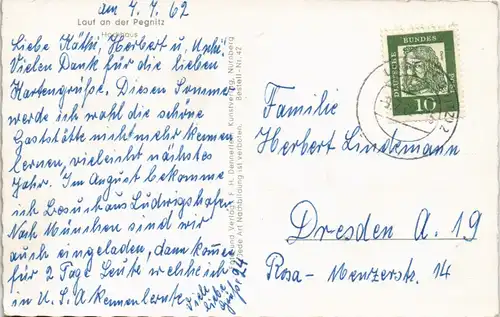 am 4. 7. 62
Lauf an der Pegnitz
Hochhaus
Liebe Käthi, Herbert u. Uschi.
Vielen Dank für die lieben
Kartengrüße. Diesen Sommer
werde ich wohl die schöne
Gaststätte nicht mehr kennen
lernen, vielleicht nächstes
Jahr. Im August bekomme
ich Besuch aus Ludwigshafen
Nach München sind wir
auch eingeladen, dann kommen
für 2 Tage Leute welche ich
in U. S. A kennenlernte
Viele
liebe
Grüße
und Verlag: F. H. Dennerlein, Kunstverlag, Nürnberg
Jede Art Nachbildung ist verboten.
Bestell-Nr. 42
DEUTSCHE
BUNDES
POST
10
Familie
Herbert Lindemann
Dresden A. 19
Rosa-Menzerstr. 14